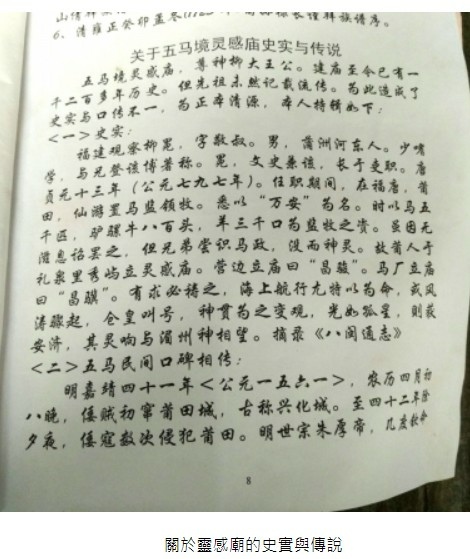 6、清雍正癸卯孟冬
关于五马境灵感庙史实与传说
五马境灵感庙，尊神柳大王公。建庙至今已有一
千二百多年历史。但先祖未然记载流传。为此造成了
史实与口传不一，为正本清源，本人特辑如下：
<一>史实：
福建观察柳冕，字敬叔。男，蒲洲河东人。少嗜
学，与元登该博著称。冕，文史兼该，长于吏职。唐
贞元十三年（公元七九七年）。任职期间，在福唐，莆
田，仙游置马监领牧。悉以“万安”为名。时以马五
千匹，驴骡牛八百头，羊三千口为监牧之资。虽因无
滋息诏罢之，但兄弟尝识马政，没而神灵。故莆人于
礼泉里秀屿立灵感庙。营边立庙曰“昌骏”。马厂立庙
曰“昌骥”。有求必祷之，海上航行尤特以为命，或风
涛骤起，仓皇叫号，神贯为之变现，光如孤星，则获
安济，其灵响与湄州神相望。摘录《八闽通志》
<二>五马民间口碑相传：
明嘉靖四十一年<公元一五六一>，农历四月初
八晚，倭贼初窜莆田城，古称兴化城。至四十二年除
夕夜，倭寇数次侵犯莆田。明世宗朱厚帝，几度敕命
8
關於靈感廟的史實與傳說